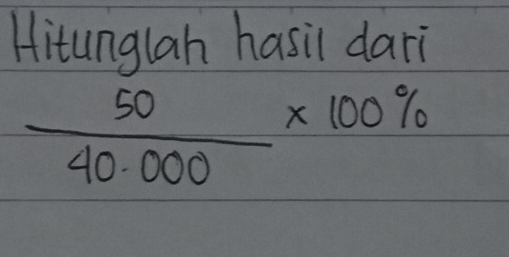 Hitunglah hasil dari
50
× 100%
40.000